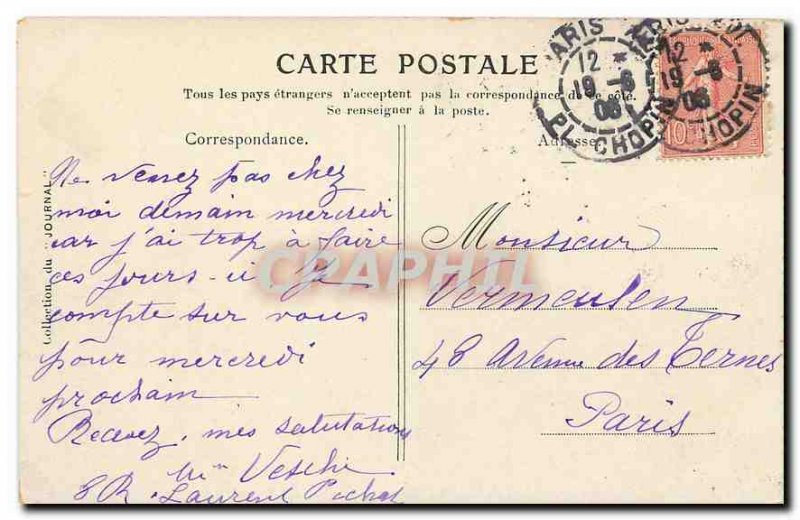 CARTE POSTALE
Tous les pays étrangers n'acceptent pas la correspondance de ce côté.
Se renseigner à la poste.
Correspondance.
Adresse
Ne venez pas chez
moi demain mercredi
car j'ai trop à faire
ces jours-ci. Je
compte sur vous
pour mercredi
prochain
Recevez, mes salutations
8 R. Laurent Pichat
Collection du "JOURNAL"
Monsieur
Vermeulen
48 Avenue des Ternes
Paris
PARIS
12 *
19 - 6
06
PL. CHOPIN
PARIS
12 *
19 - 6
06
CHOPIN
10
CPAPHIL